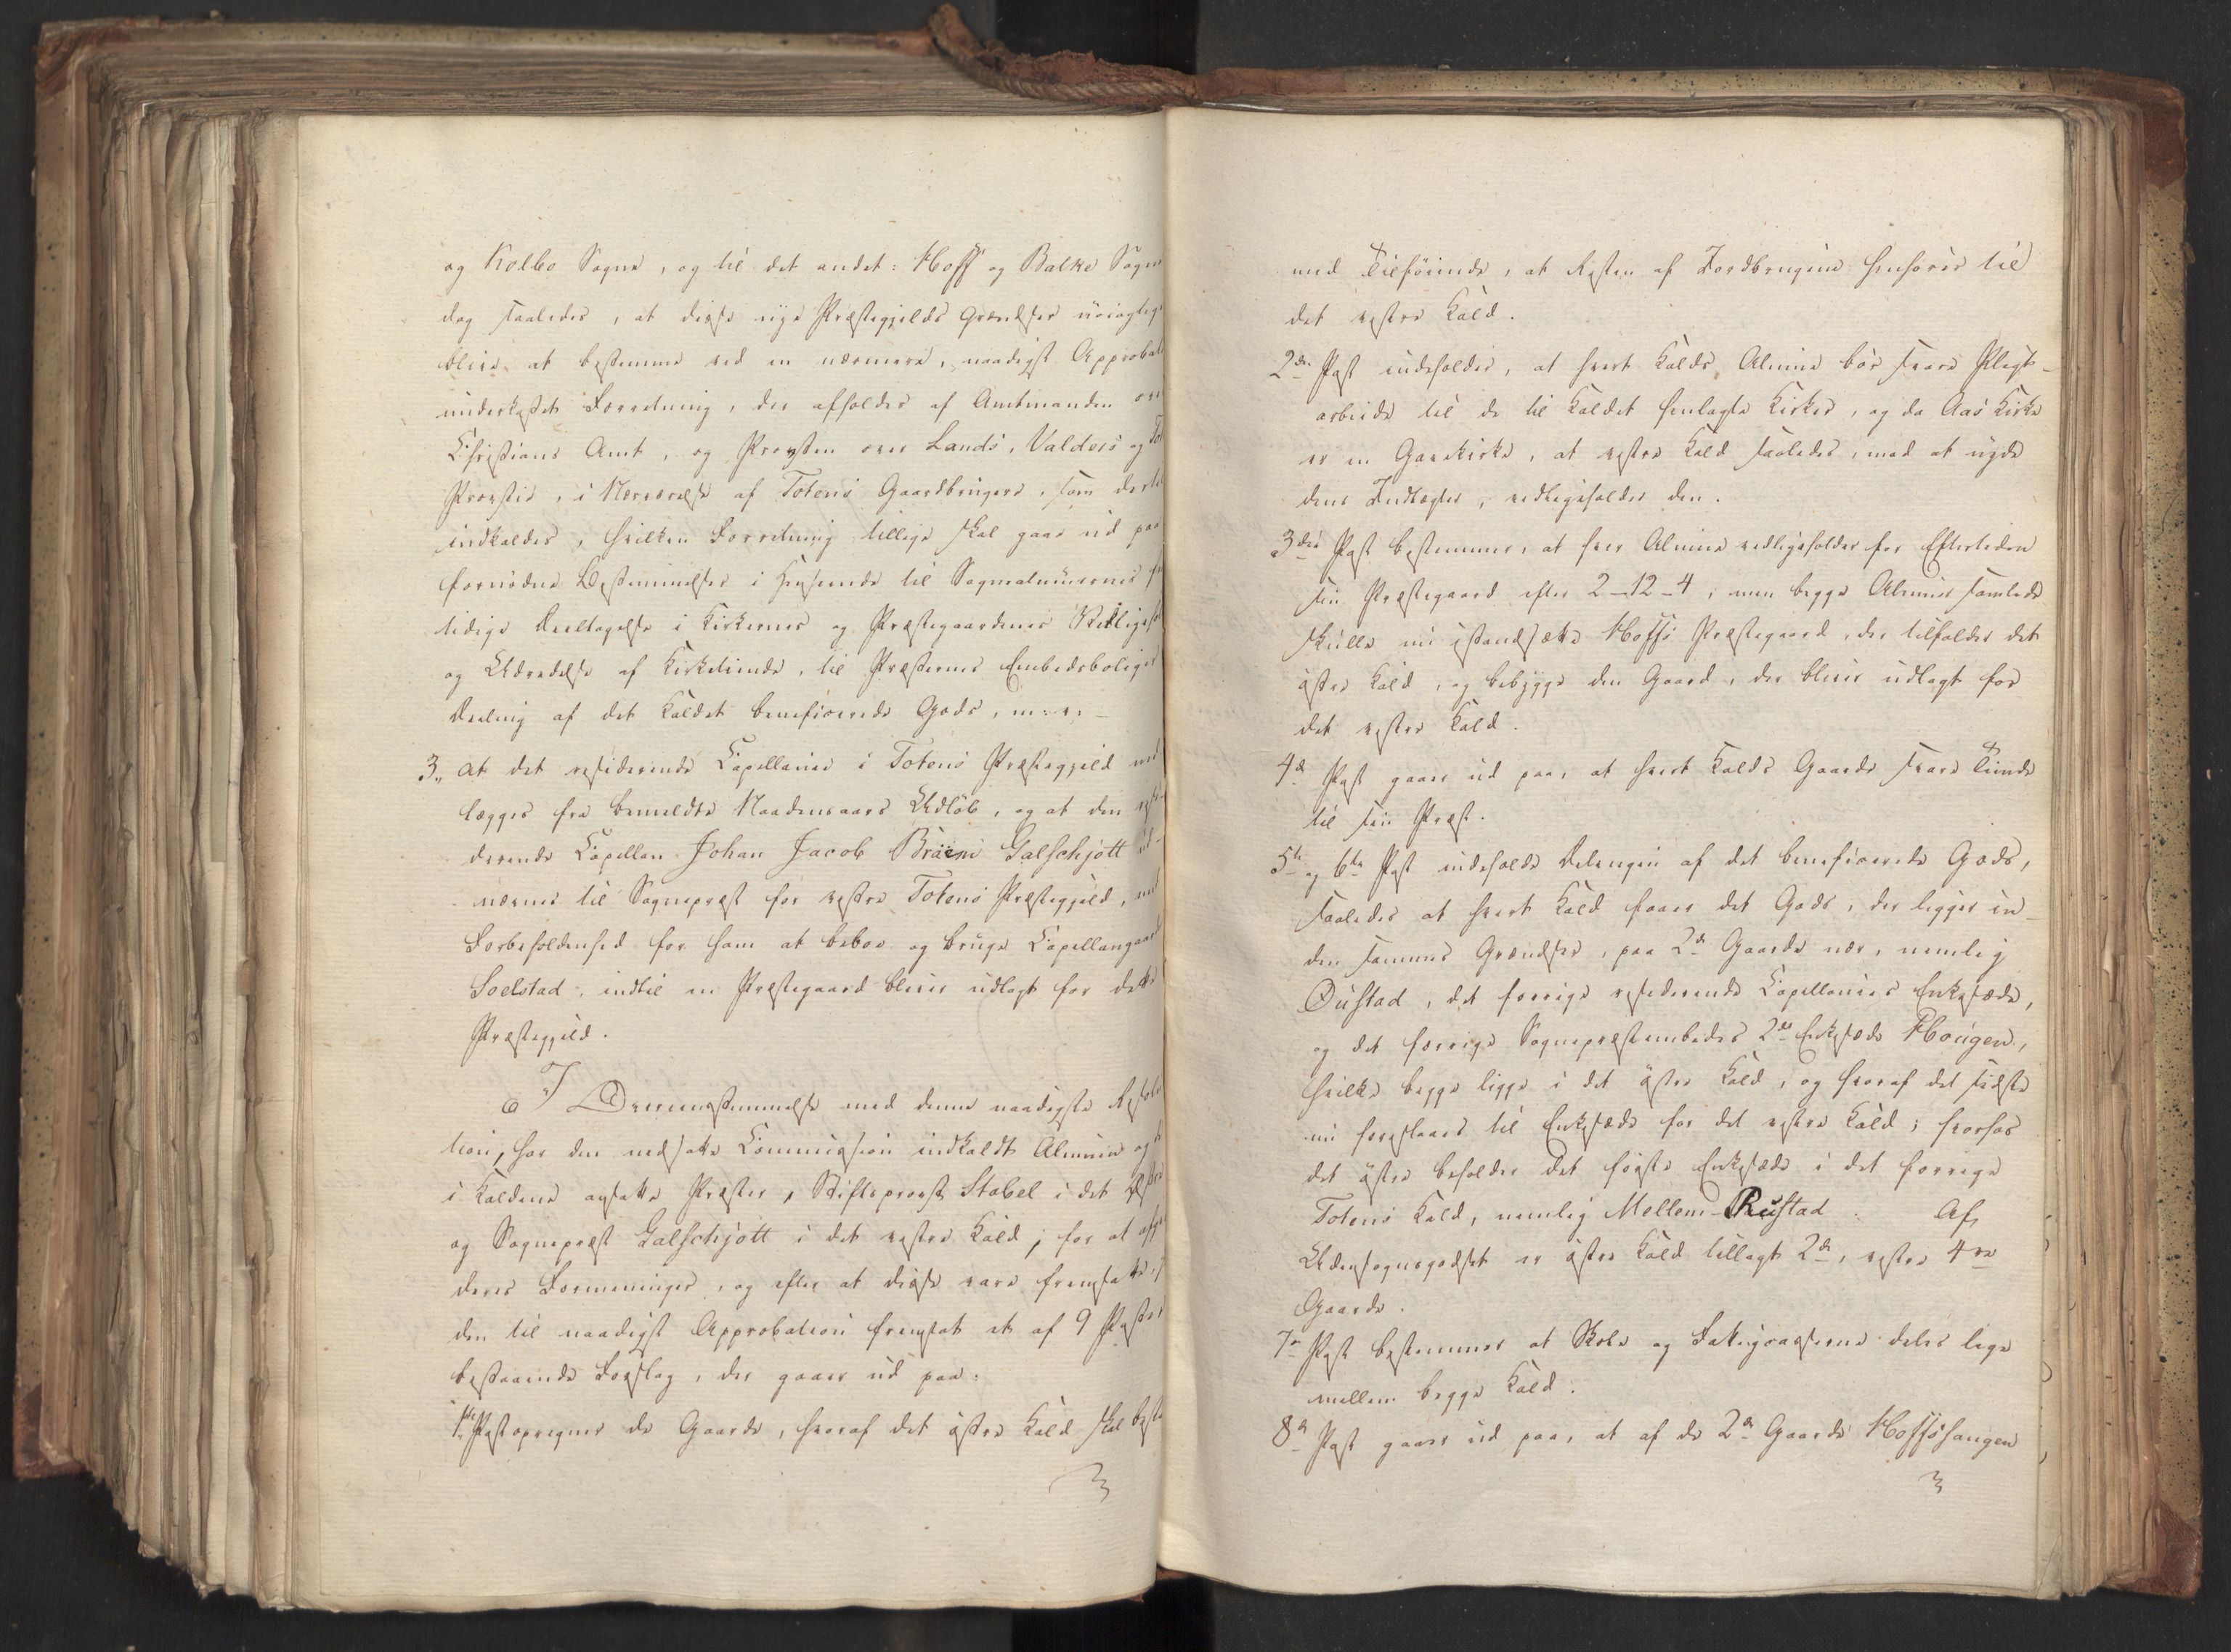 og Kolbo Sogne, og til det andet: Hoff og Balke Sogne
dog saaledes, at disse nye Præstegjelds Grændser nöiagtige
blive at bestemme ved en nærmere, naadigst Approbat
underkastet Forretning, der afholdes af Amtmanden over
Christians Amt, og Provsten over Lands, Valders og
Provstie, i Nærværelse af Totens Gaardbrugere, som dertil
indkaldes, hvilken Forretning tillige skal gaae ud paa
fornödne Bestemmelser i Henseende til Sognealmuernes
tidige Deeltagelse i Kirkernes og Præstegaardenes Vedligehol
og Udredelse af Kirketiende, til Præsternes Embedsboliger
Deeling af det Kaldet beneficerede Gods, m: v:
3, at det residerende Capellanie i Totens Præstegjeld ned
lægges fra bemeldte Naadensaars Udlöb, og at den resi
derende Capellan Johan Jacob Bräem Galschjött ud-
nævnes til Sognepræst for vestre Totens Præstegjeld, med
Forbeholdenhed for ham at beboe og bruge Capellangaard
Soelstad, indtil en Præstegaard bliver udlagt for dette
Præstegjeld.
I Overeensstemmelse med denne naadigste Resolu
tion, har den nedsatte Commission indkaldt Almuen og
i Kaldene ansatte Præster, Stiftsprovst Stabel i det Østre
og Sognepræst Galschjött i det vestre Kald, for at afgi
deres Formeninger, og efter at disse vare fremsatte,
den til naadigst Approbation fremsat et af 9 Poster
bestaaende Forslag, der gaaer ud paa:
1ste Post opregner de Gaarde, hvoraf det östre Kald skal bestaa
med Tilföiende, at Resten af Jordbrugene henhörer til
det vestre Kald.
2den Post indeholder, at hvert Kalds Almue bör svare Pligt-
arbeide til de til Kaldet henlagte Kirker, og da Aas Kirke
er en Gavekirke, at vestre Kald saaledes, med at nyde
dens Indtægter, vedligeholder den.
3die Post bestemmer, at hver Almue vedligeholder for Eftertiden
sin Præstegaard efter 2-12-4, men begge Almuer samlede
skulle nu istandsætte Hoffs Præstegaard, der tilfalder det
östre Kald, og bebygge den Gaard, der bliver udlagt for
det vestre Kald.
4de Post gaaer ud paa, at hvert Kalds Gaarde svare Tiende
til sin Præst.
5te og 6te Post indeholde Delingen af det beneficerede Gods,
saaledes at hvert Kald faaer det Gods, der ligger in-
den sammes Grændser, paa 2de Gaarde nær, nemlig
Oustad, det forrige residerende Capellanies Enkesæde,
og det forrige Sognepræstembedes 2det Enkesæde Hougen,
hvilke begge ligge i det östre Kald, og hvoraf det sidste
nu foreslaaes til Enkesæde for det vestre Kald; hvorhos
det östre beholder det förste Enkesæde i det forrige
Totens Kald, nemlig Mellem-Rustad. Af
Udensognsgodset er östre Kald tillagt 2de, vestre 4re
Gaarde.
7de Post bestemmer at Skole og Fattigvæsene deles lige
mellem begge Kald.
8de Post gaaer ud paa, at af de 2de Gaarde Hoffshangen